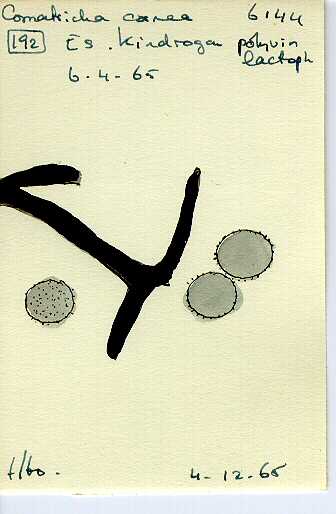 Comatricha carea 6144
192 Es. Kindrogan polyvin
lactoph
6-4-65
4-12-65